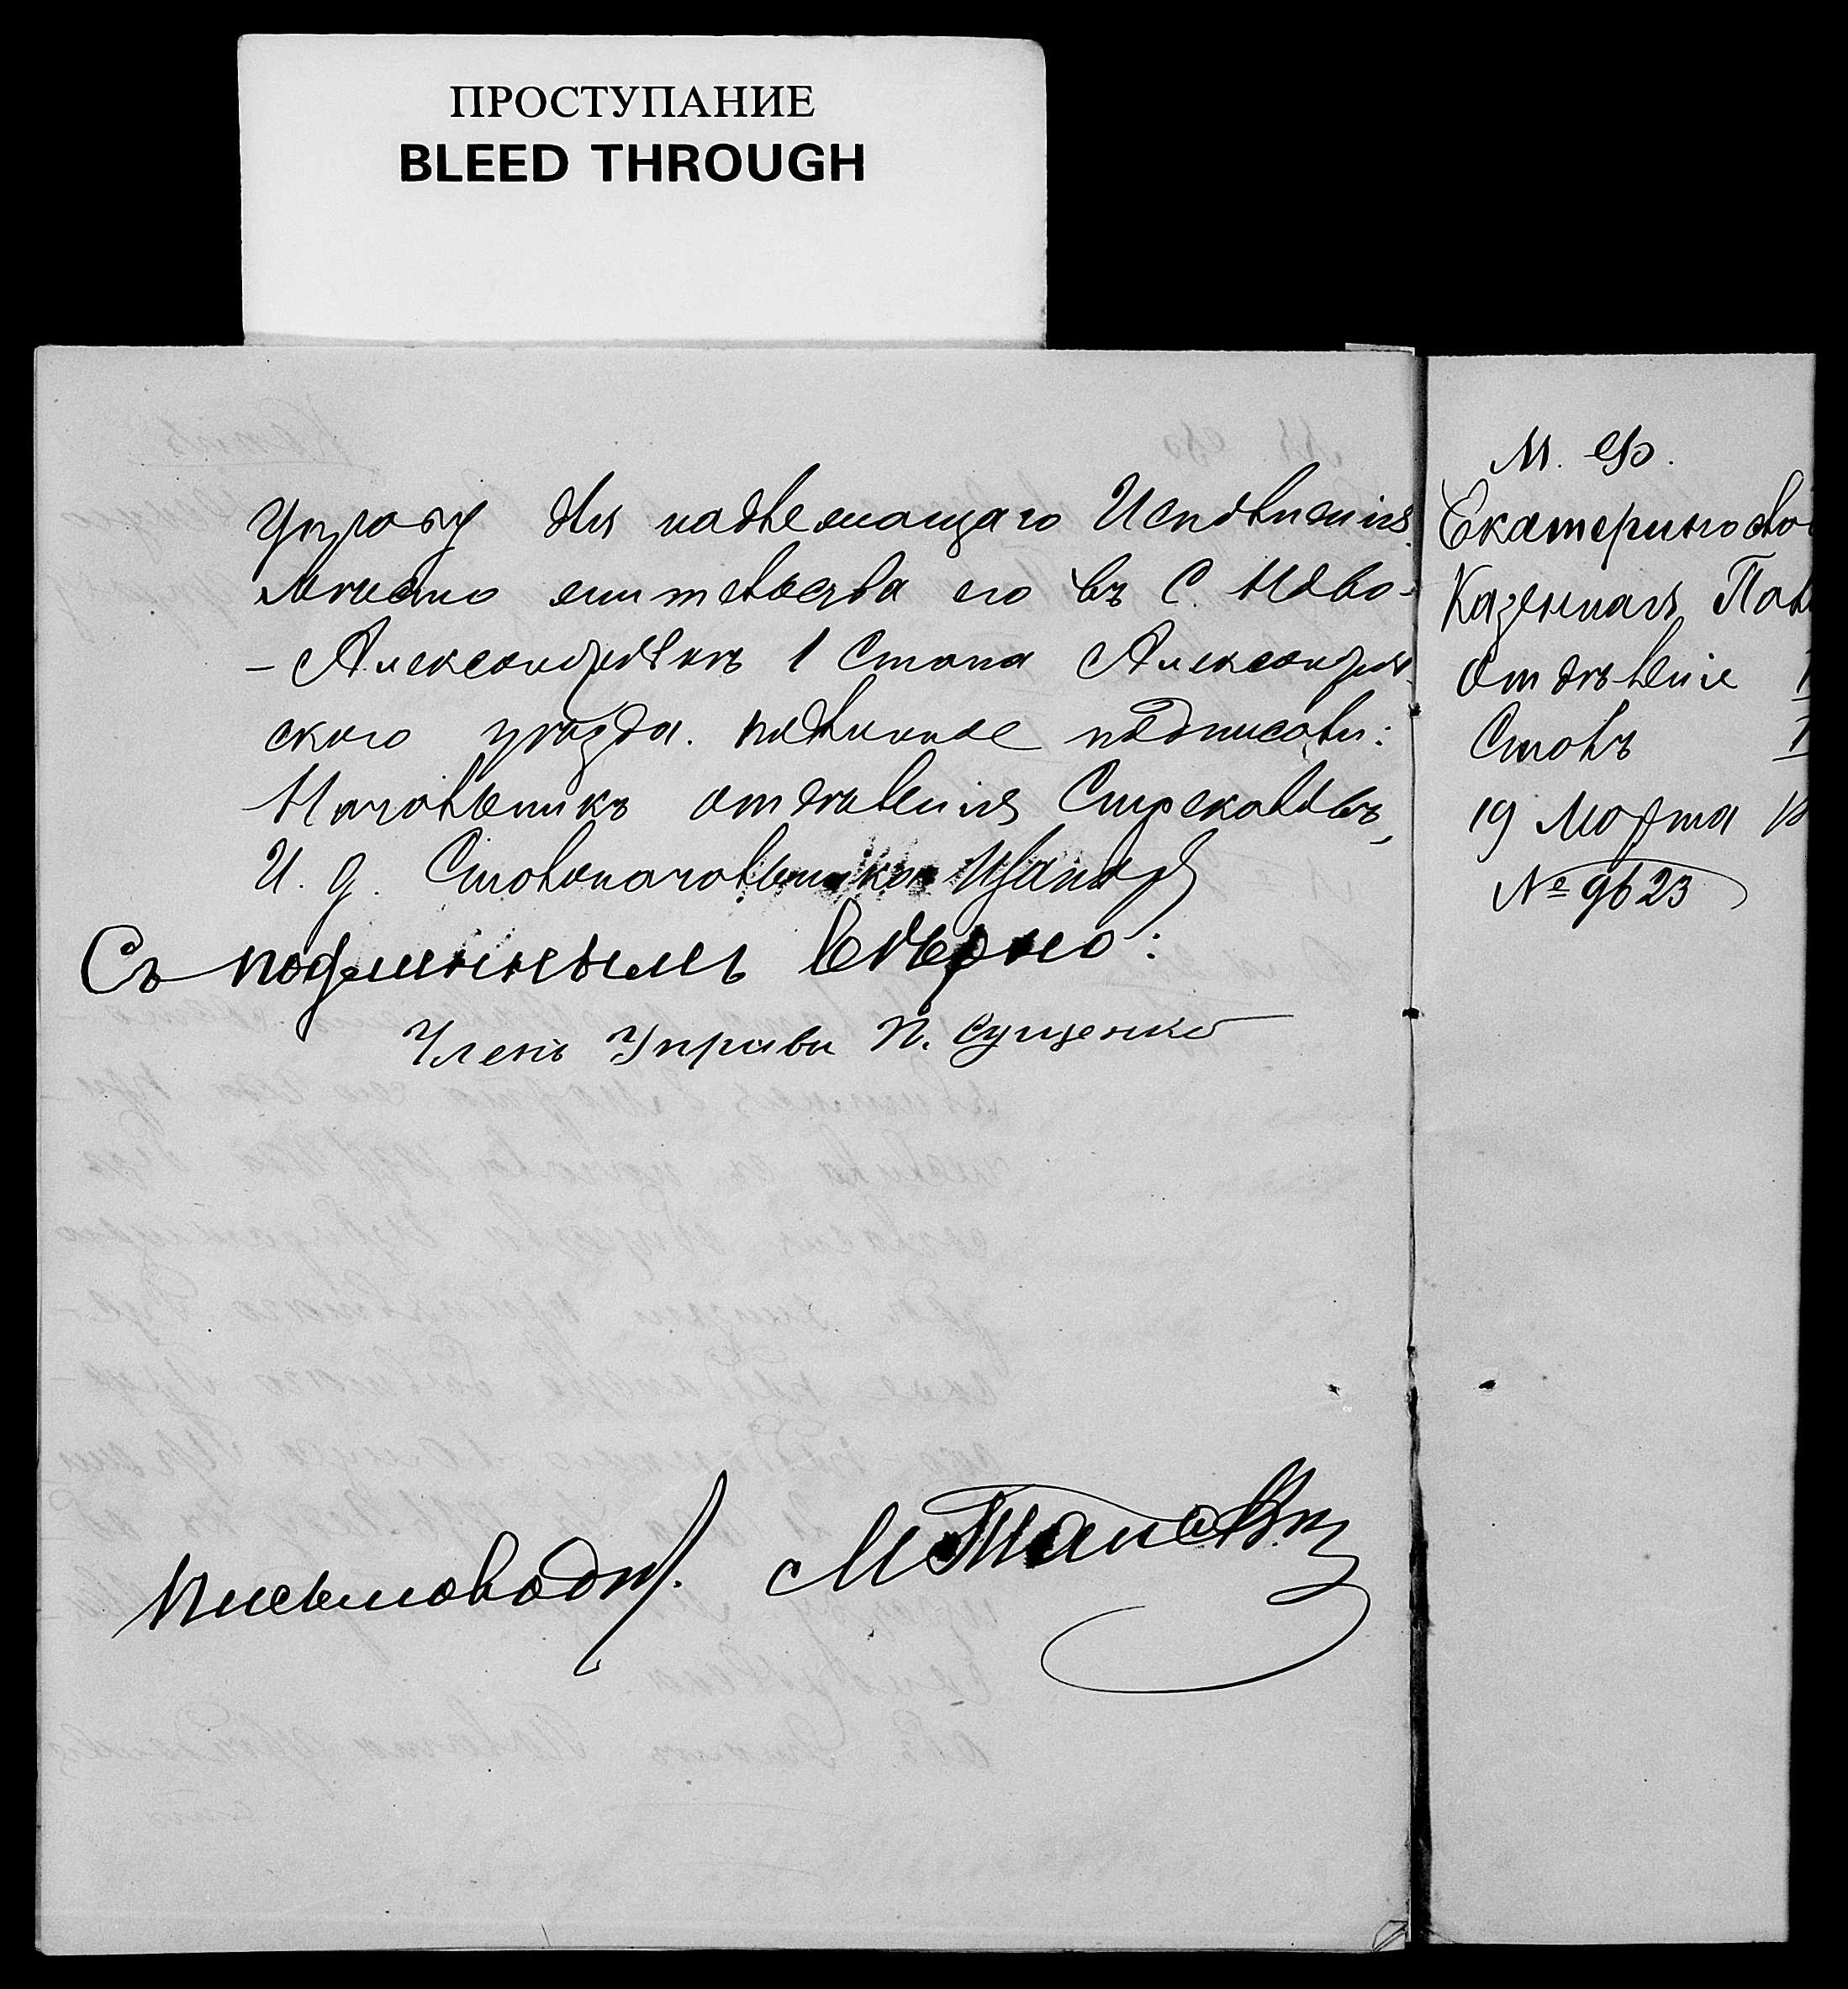 ПРОСТУПАНИЕ
BLEED THROUGH
Управу для надлежащаго Исполненія.
Мѣсто жительства его въ С. Ново-
-Александровкѣ 1 Стана Александров-
скаго уѣзда. подлинное подписали:
Начальникъ отдѣленія Стрекаловъ,
И. д. Столоначальника Ивановъ
Съ подлиннымъ вѣрно:
Членъ Управы П. Сущенко
Письмоводит.
М. Ф.
Екатеринославс
Казенная Пал
Отдѣленіе
Столъ
19 Марта
№ 9623